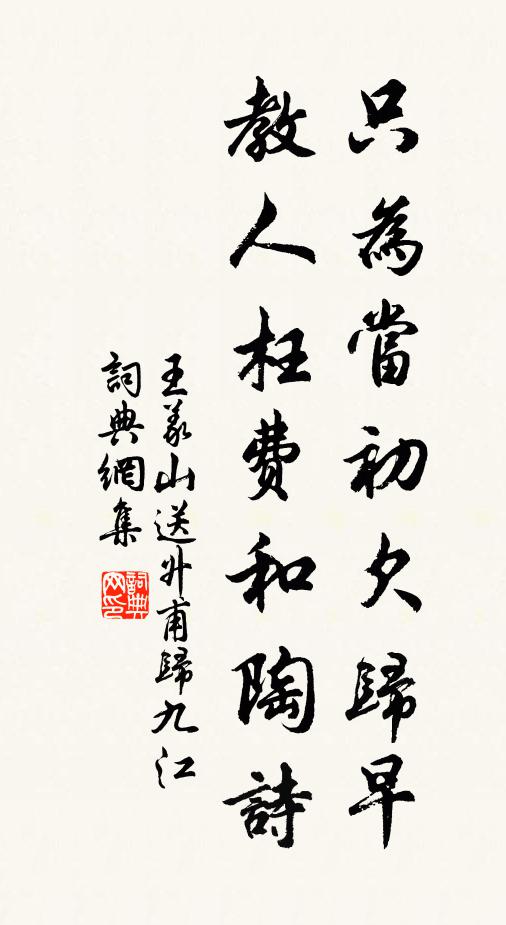 只為當初欠歸早
教人枉费和陶詩
王義山送外甫歸九江
詞典網集
詞典网印